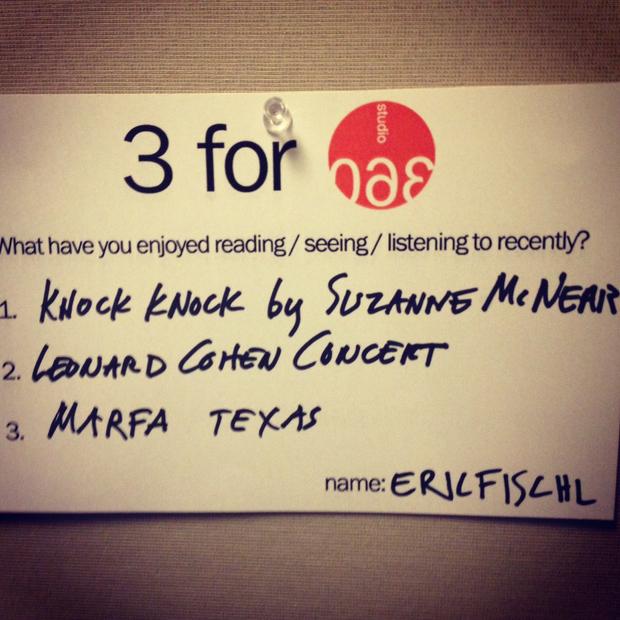 3 for studio 360
What have you enjoyed reading / seeing / listening to recently?
1. KNOCK KNOCK by SUZANNE McNEAR
2. LEONARD COHEN CONCERT
3. MARFA TEXAS
name: ERIC FISCHL